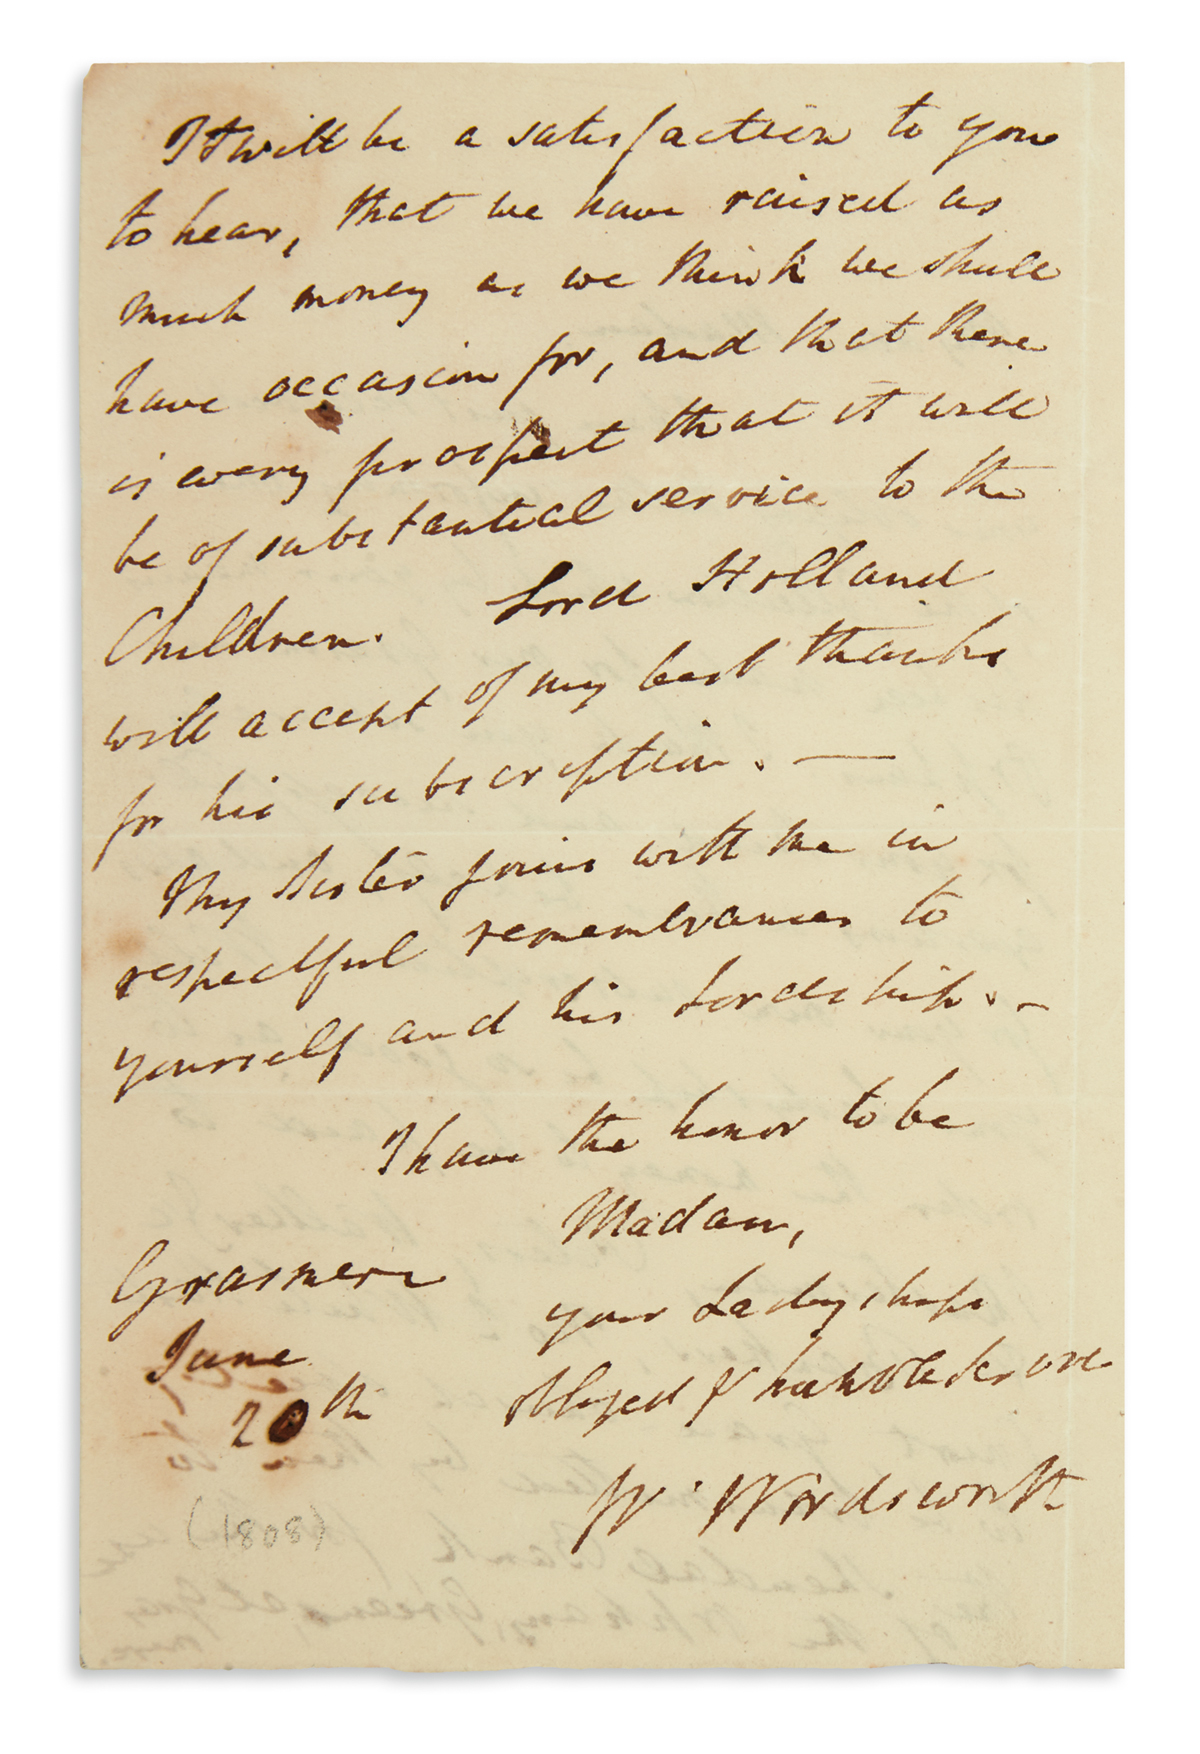 It will be a satisfaction to you
to hear, that we have raised as
much money as we think we shall
have occasion for, and that there
is every prospect that it will
be of substantial service to the
Children. Lord Holland
will accept of my best thanks
for his subscription. —
My Sister joins with me in
respectful remembrances to
yourself and his Lordship. –
I have the honor to be
Madam,
Grasmere
your Ladyship's
June
obliged & humble serv
20th
W. Wordsworth
(1808)